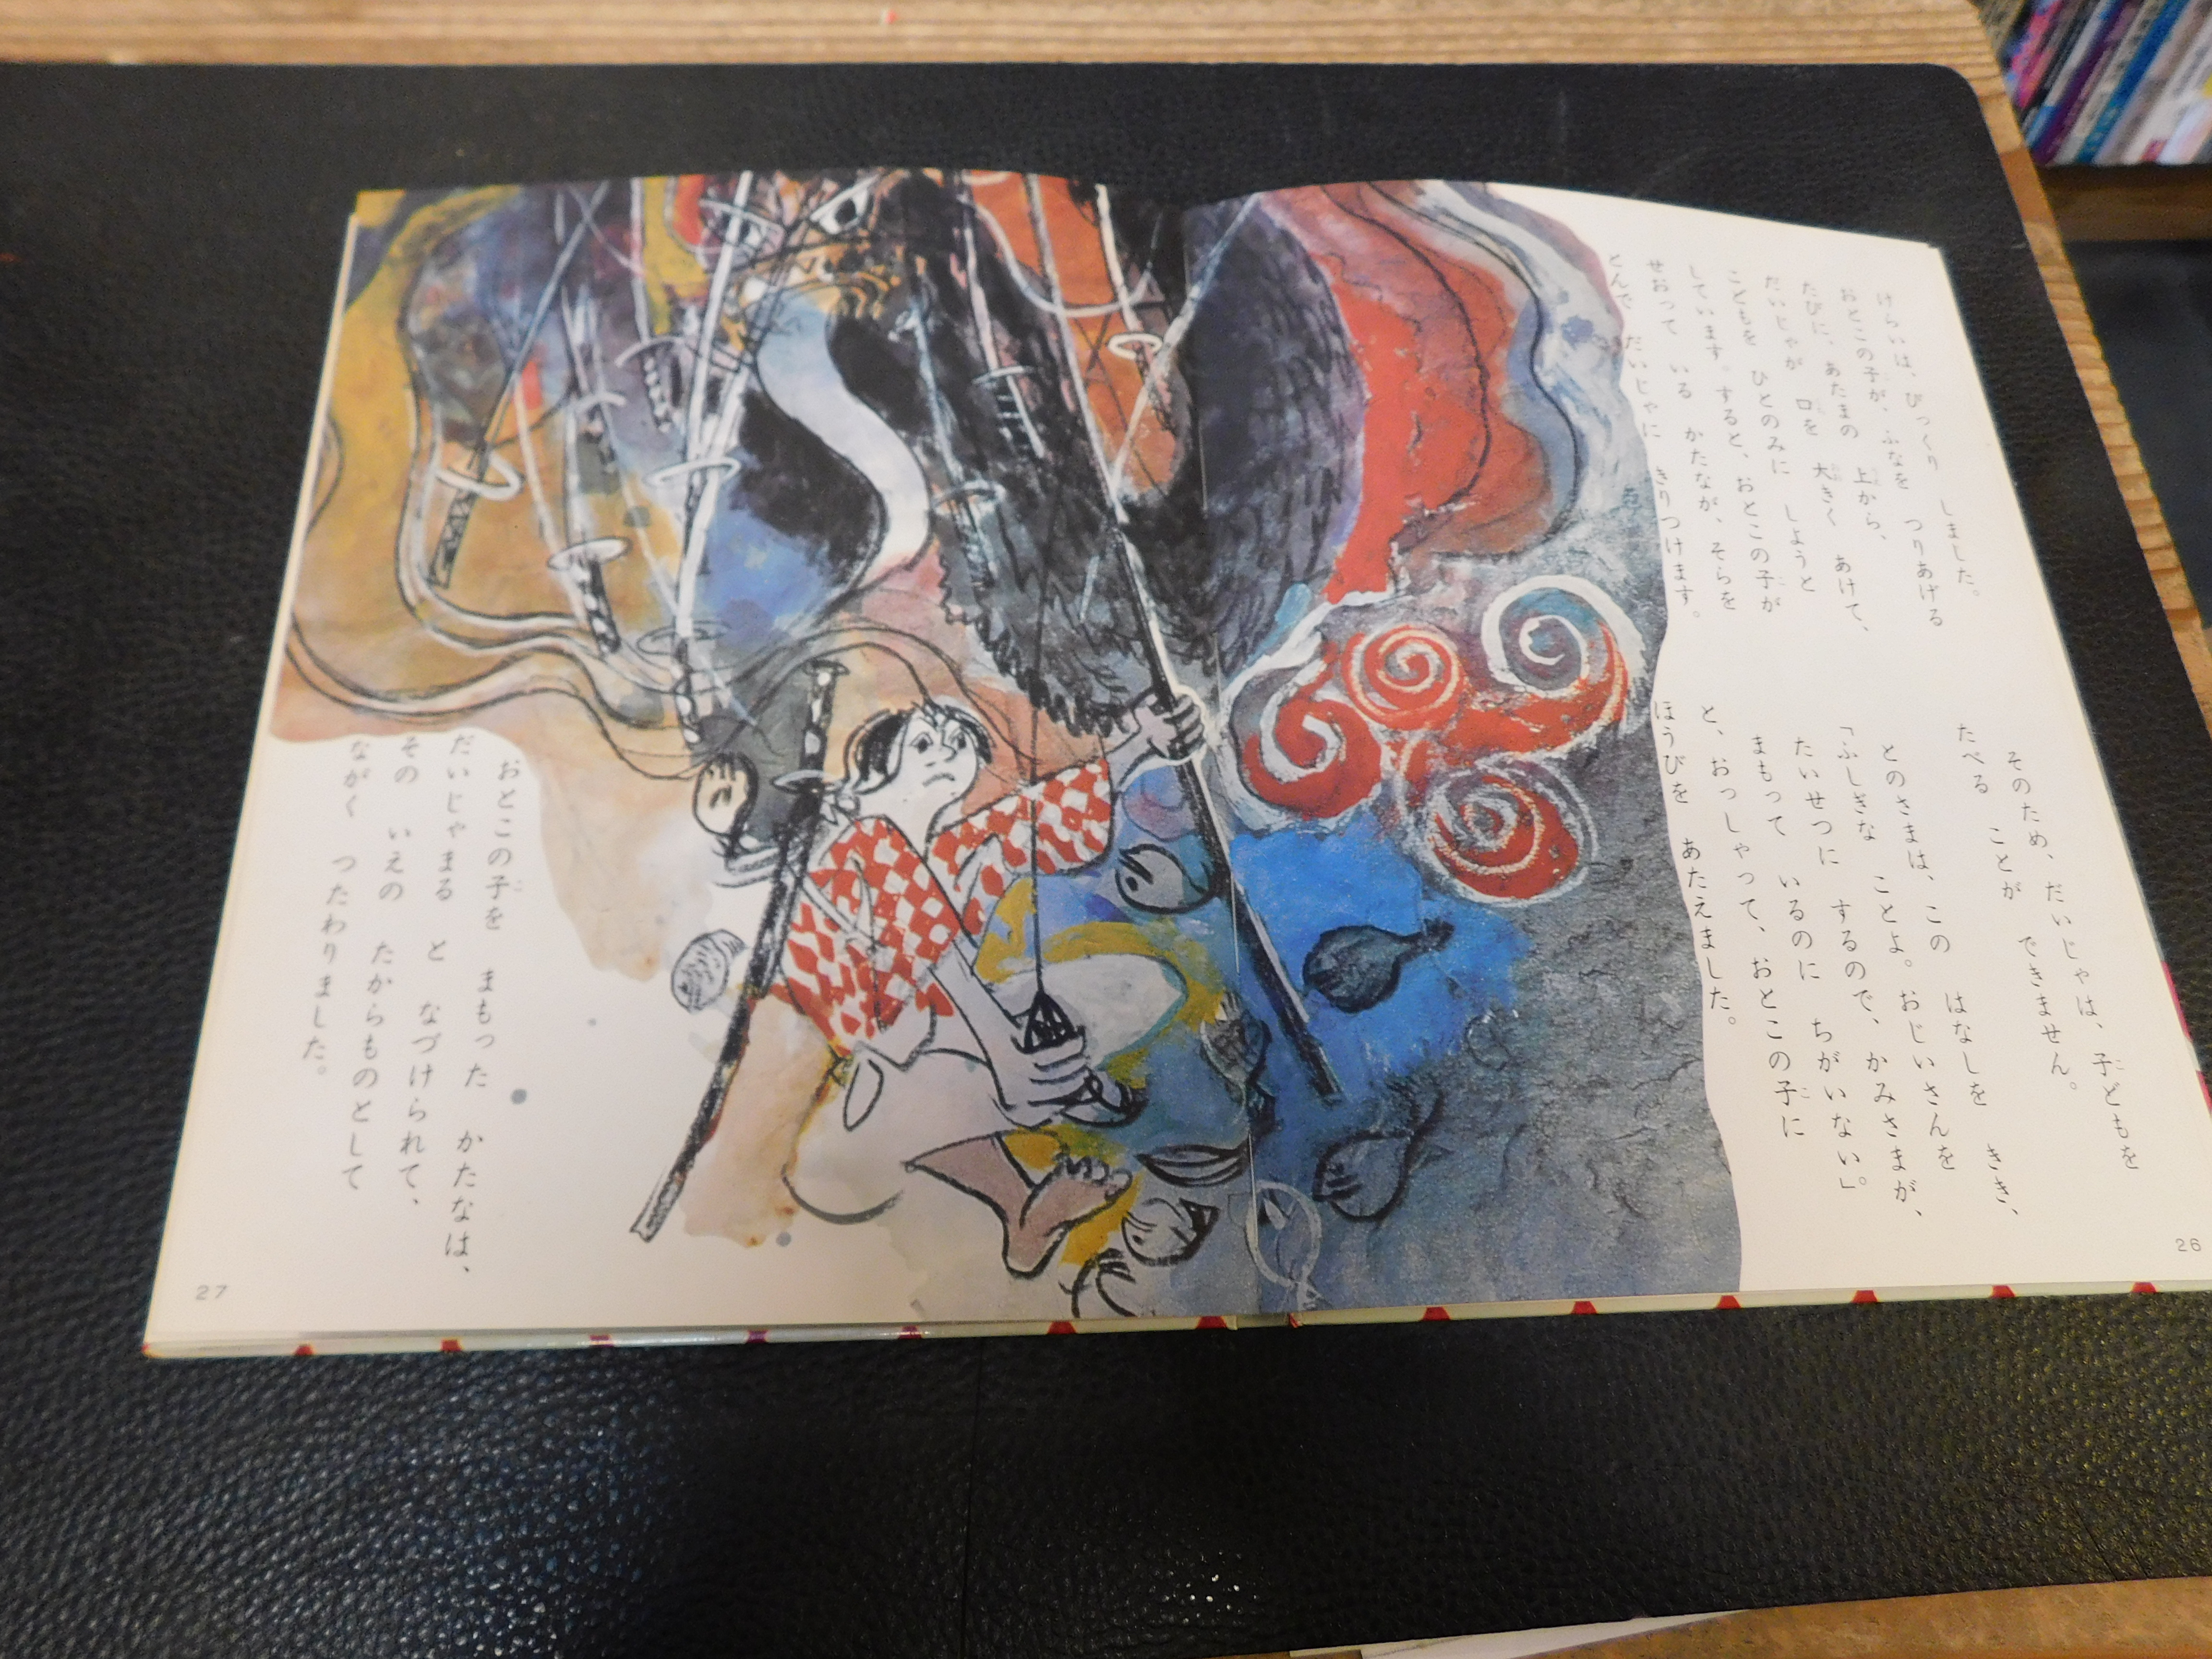 けらいは、びっくり しました。
おとこの子が、ふなを つりあげる
たびに、あたまの 上から、
だいじゃが 口を 大きく あけて、
こどもを ひとのみに しようと
しています。すると、おとこの子が
せおって いる かたなが、そらを
とんで だいじゃに きりつけます。
そのため、だいじゃは、子どもを
たべる ことが できません。
とのさまは、この はなしを きき、
「ふしぎな ことよ。おじいさんを
たいせつに するので、かみさまが、
まもって いるのに ちがいない。」
と、おっしゃって、おとこの子に
ほうびを あたえました。
26
おとこの子を まもった かたなは、
だいじゃまる と なづけられて、
その いえの たからものとして
ながく つたわりました。
27